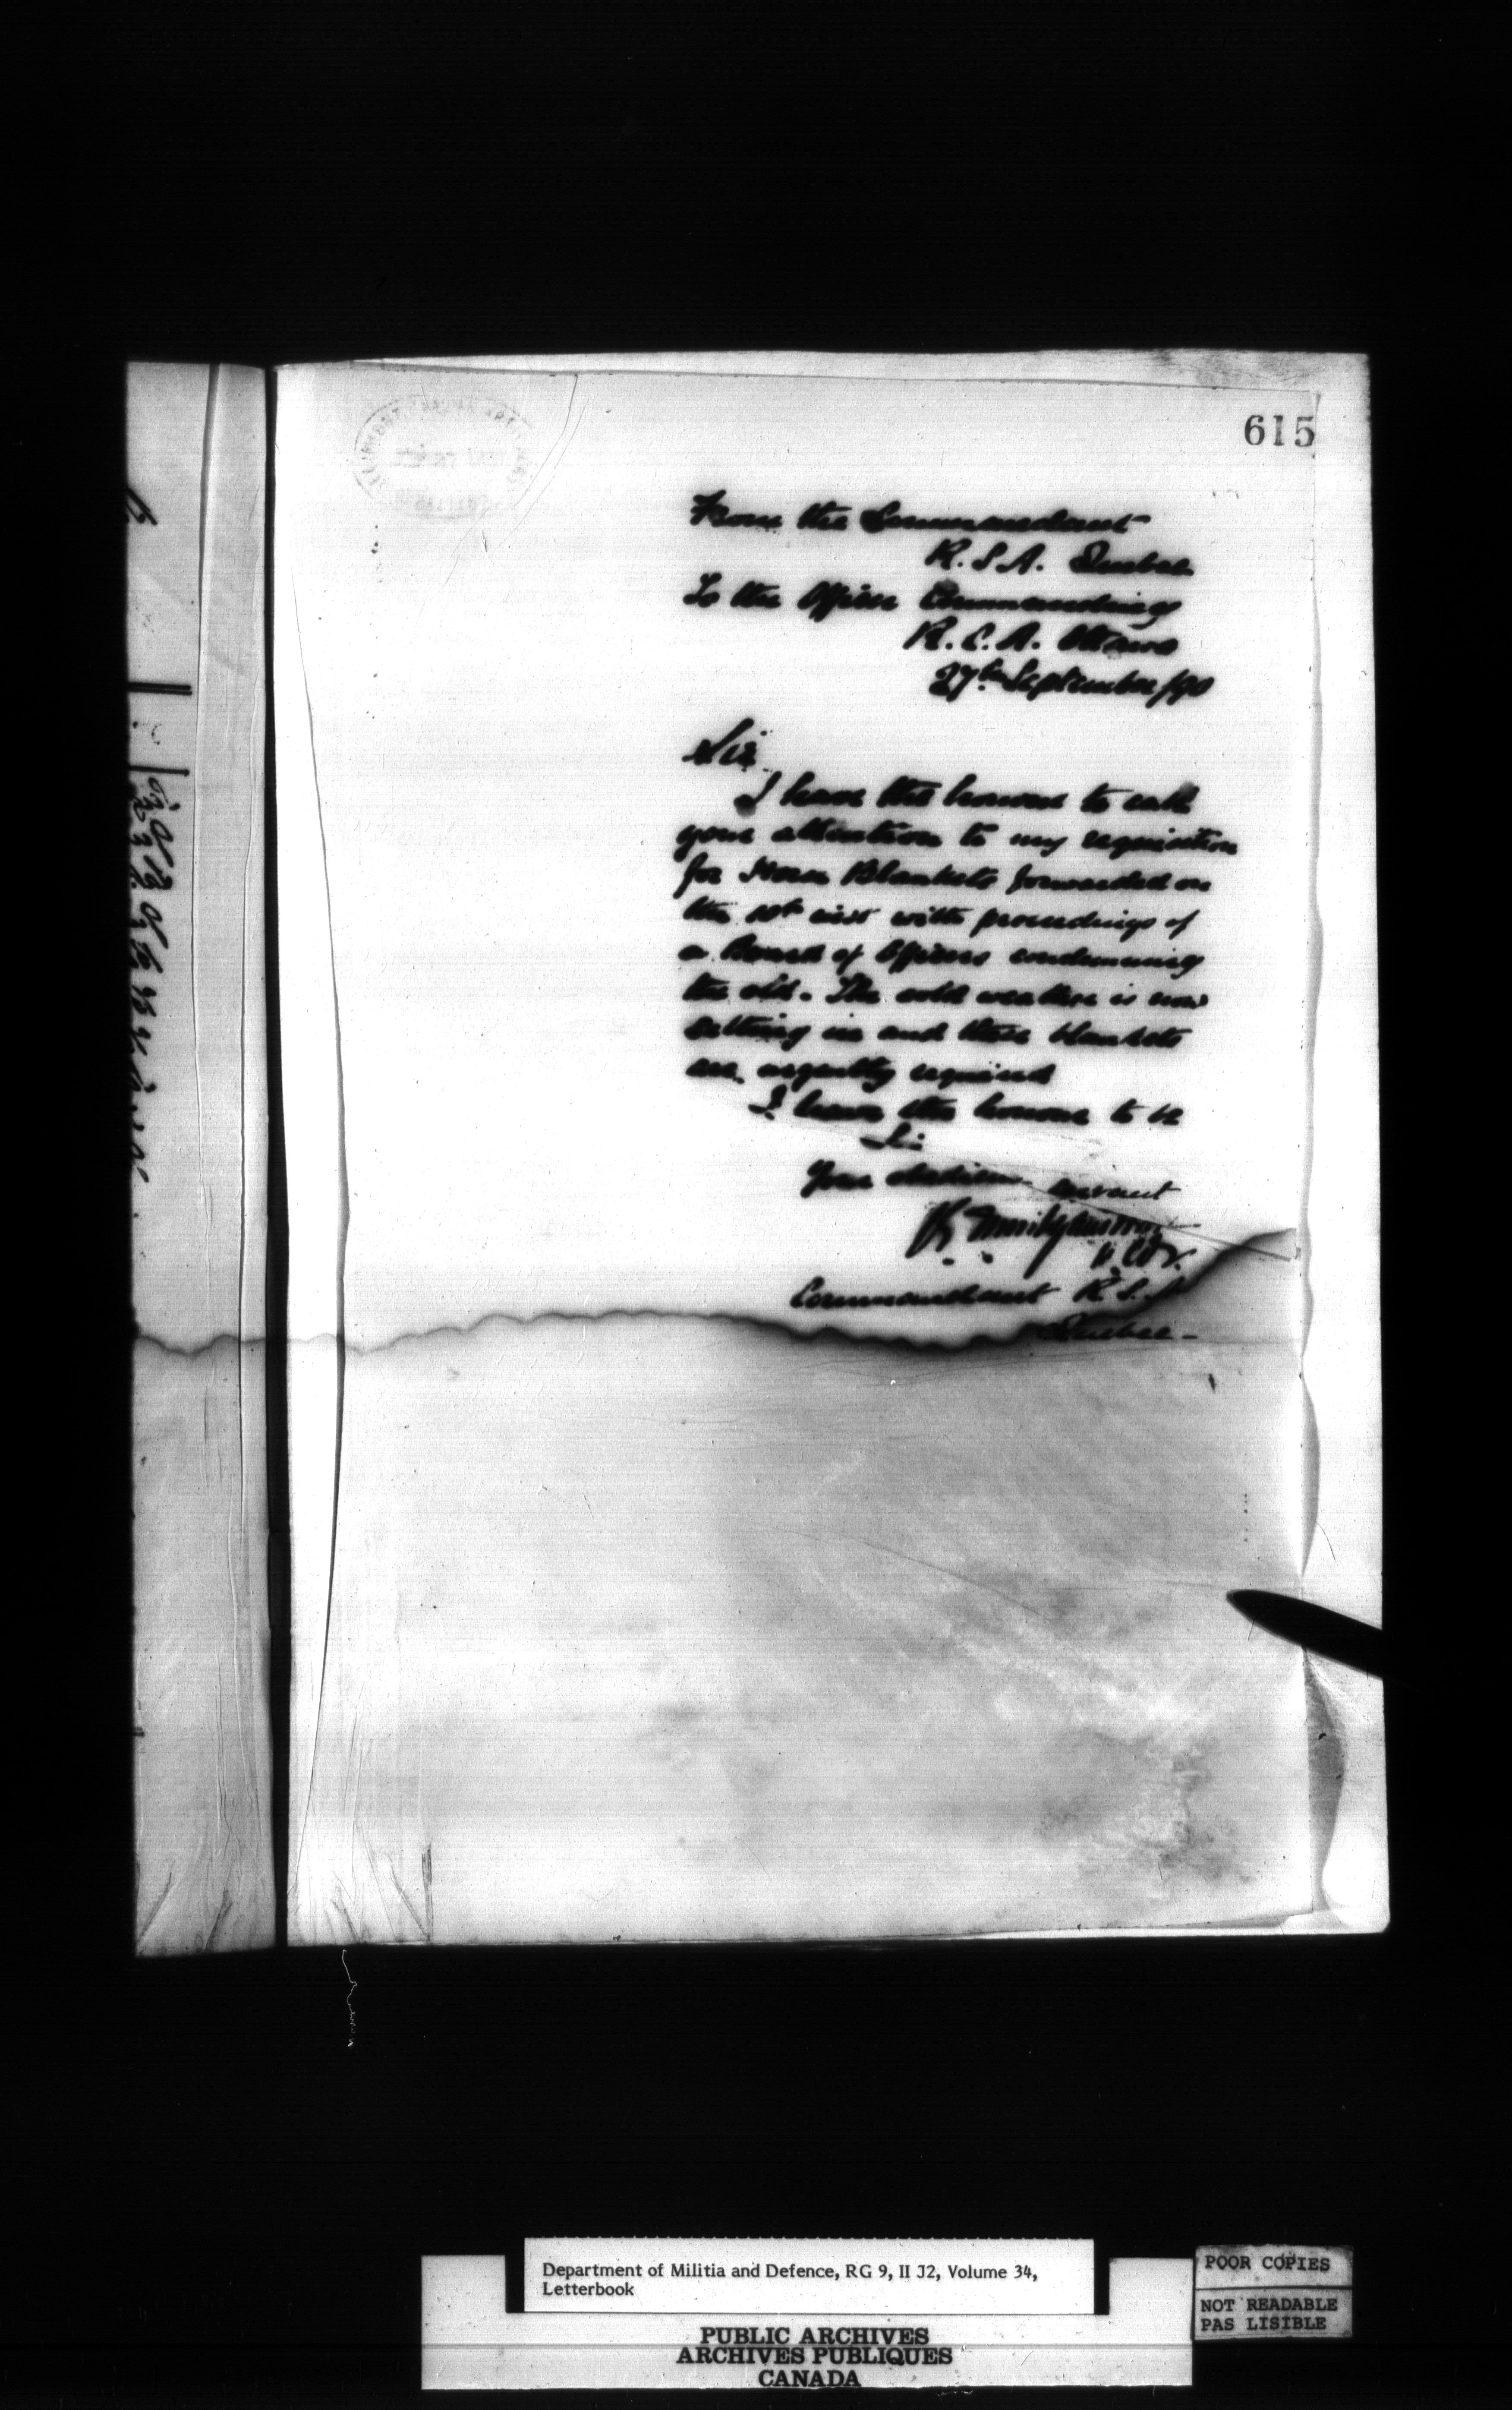 615
From the Commandant
R.S.A. Quebec
To the Officer Commanding
R.C.A. Ottawa
27th September/90
Sir
I have the honour to call
your attention to my requisition
for Horse Blankets forwarded on
the inst with proceedings of
a Board of Officers condemning
the old. The cold weather is now
setting in and these blankets
are urgently required
I have the honour to be
Sir
Your obedient servant
Commandant R.S.A.
Quebec-
Department of Militia and Defence, RG 9, II J2, Volume 34,
Letterbook
PUBLIC ARCHIVES
ARCHIVES PUBLIQUES
CANADA
POOR COPIES
NOT READABLE
PAS LISIBLE